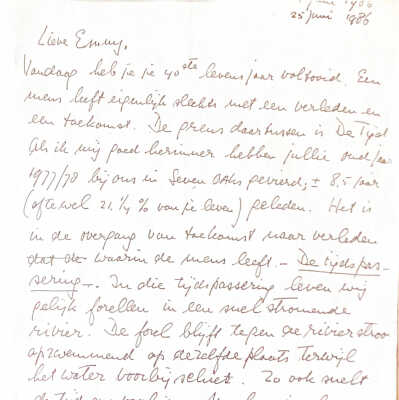 juni 1986
25 juni 1986
Lieve Emmy,
Vandaag heb je je 40ste levensjaar voltooid. Een
mens leeft eigenlijk slechts met een verleden en
een toekomst. De grens daartussen is De Tijd
Als ik mij goed herinner hebben jullie oudjaar
1977/78 bij ons in Seven Oaks gevierd; ± 8,5 jaar
(oftewel 21 1/4 % van je leven) geleden. Het is
in de overgang van toekomst naar verleden
dat de waarin de mens leeft. – De tijdspas-
sering –. In die tijdspassering leven wij
gelijk forellen in een snel stromende
rivier. De forel blijft tegen de rivierstroom
opzwemmend op dezelfde plaats terwijl
het water voorbij schiet. Zo ook snelt
de tijd